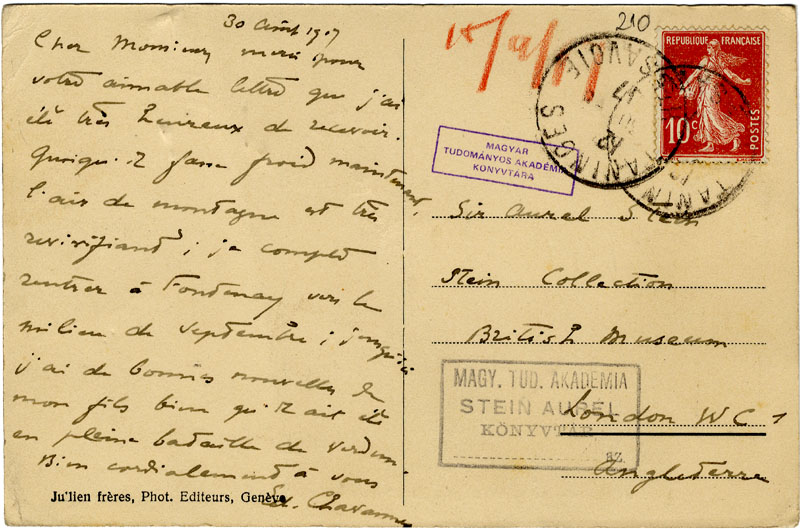 30 Août 1917
Cher Monsieur, merci pour
votre aimable lettre que j'ai
été très heureux de recevoir.
Quoiqu'il fasse froid maintenant,
l'air de montagne est très
vivifiant ; je compte
rentrer à Fontenay vers le
milieu de septembre ; jusqu'ici
j'ai de bonnes nouvelles de
mon fils bien qu'il ait été
en pleine bataille de Verdun.
Bien cordialement à vous
Ed. Chavannes
Julien frères, Phot. Editeurs, Genève
210
REPUBLIQUE FRANÇAISE
10c
POSTES
TANINGES
SAVOIE
MAGYAR
TUDOMÁNYOS AKADÉMIA
KÖNYVTÁRA
Sir Aurel Stein
Stein Collection
British Museum
London WC 1
Angleterre
MAGY. TUD. AKADÉMIA
STEIN AUREL
KÖNYVTÁR
az